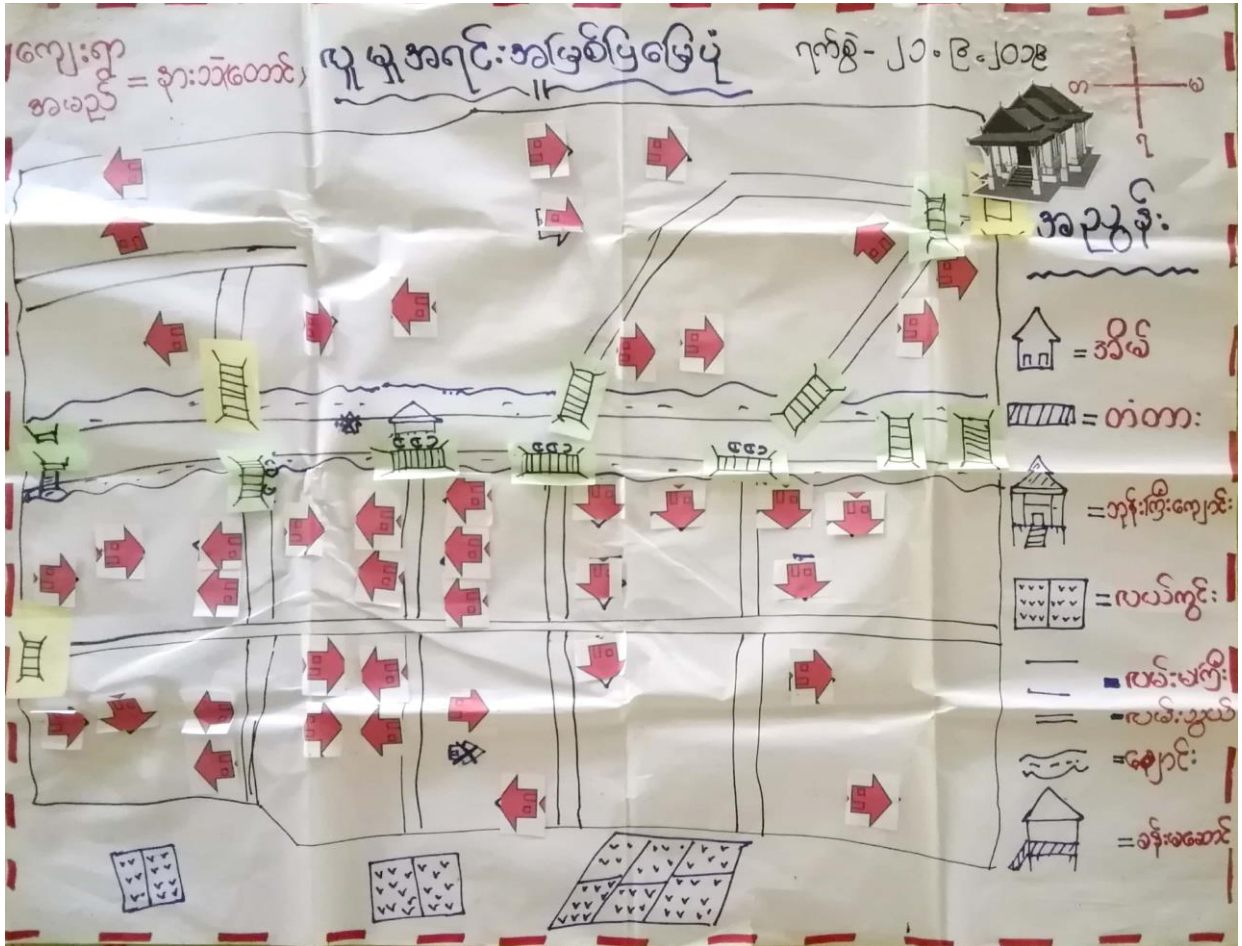 ကျေးရွာ
အမည် = နားသဲ(တောင်)
လူမှုအရင်းအမြစ်ပြမြေပုံ
ရက်စွဲ - ၂၁.၉.၂၀၁၉
တ မ
အညွှန်း
= အိမ်
= တံတား
= ဘုန်းကြီးကျောင်း
= လယ်ကွင်း
= လမ်းမကြီး
= လမ်းသွယ်
= ချောင်း
= ခန်းမဆောင်